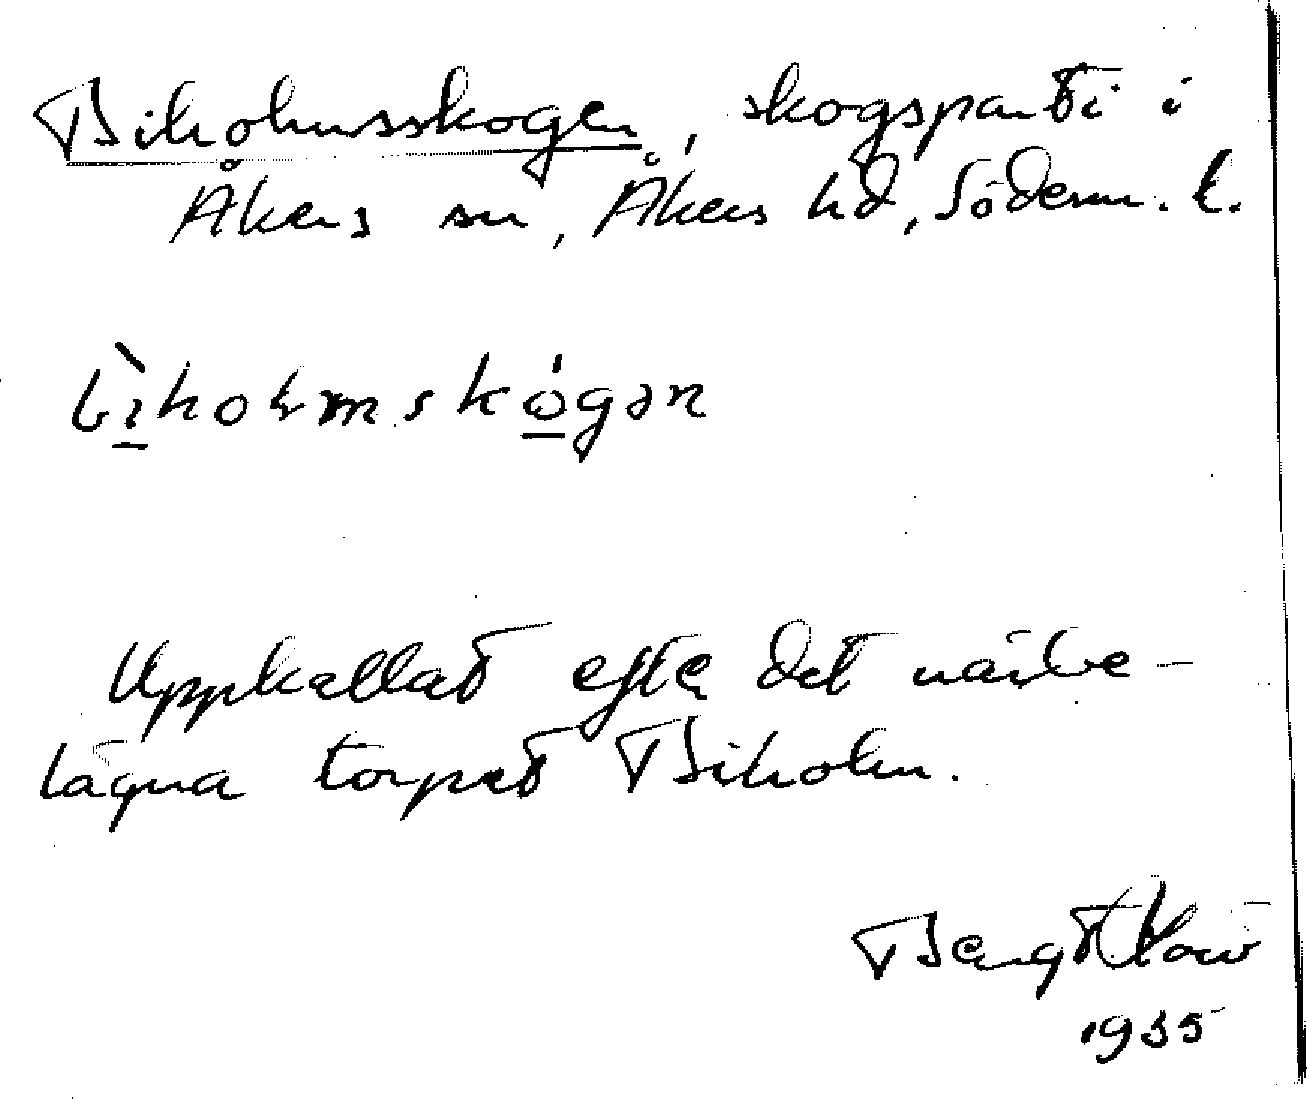 Biholmsskogen, skogsparti i
Åkers sn, Åkers hd, Söderm. l.
bìholmskógən
Uppkallat efter det närbe-
lägna torpet Biholm.
Bengt
1935